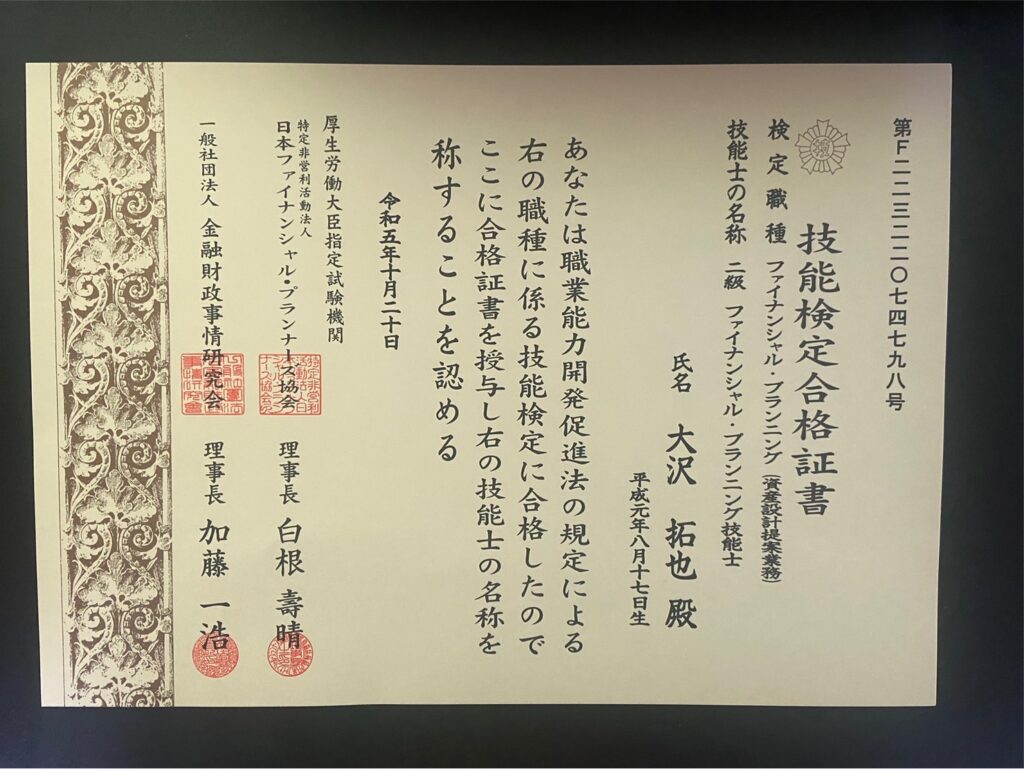 第F二二三二二〇七四七九八号
技能検定合格証書
検定職種 ファイナンシャル・プランニング(資産設計提案業務)
技能士の名称 二級 ファイナンシャル・プランニング技能士
氏名 大沢 拓也 殿
平成元年八月十七日生
あなたは職業能力開発促進法の規定による
右の職種に係る技能検定に合格したので
ここに合格証書を授与し右の技能士の名称を
称することを認める
令和五年十月二十日
厚生労働大臣指定試験機関
特定非営利活動法人
日本ファイナンシャル・プランナーズ協会 理事長 白根 壽晴
一般社団法人 金融財政事情研究会 理事長 加藤 一浩